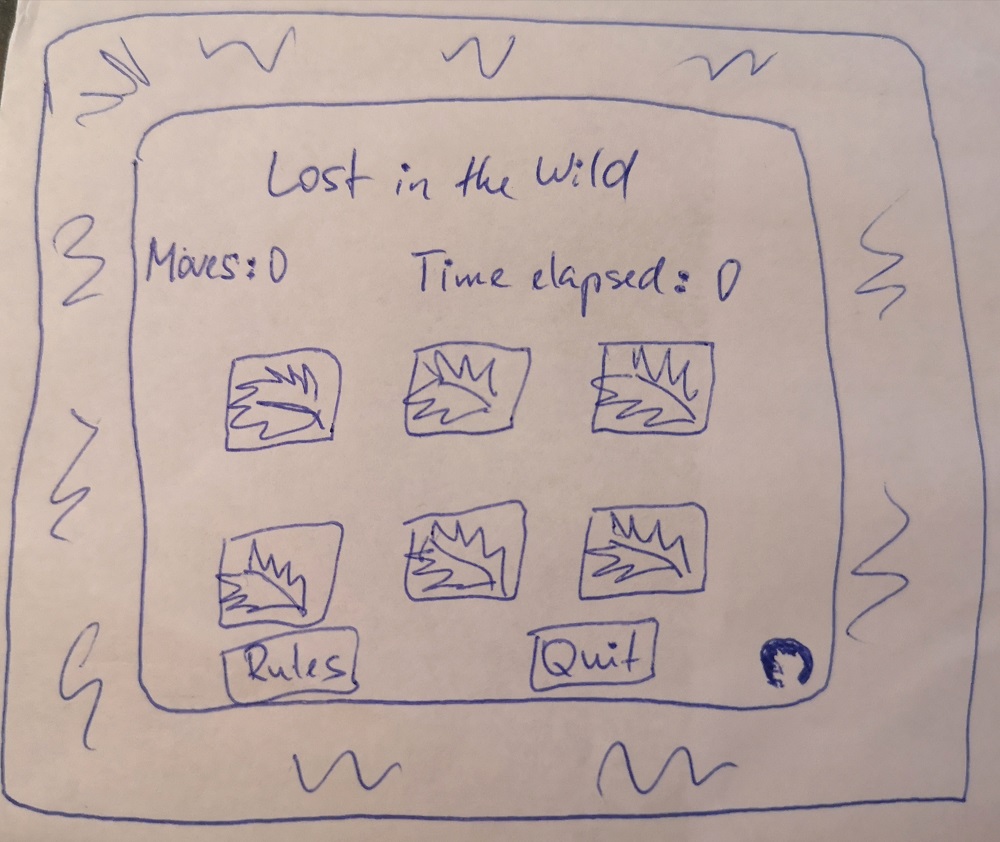 Lost in the Wild
Moves: 0
Time elapsed: 0
Rules
Quit